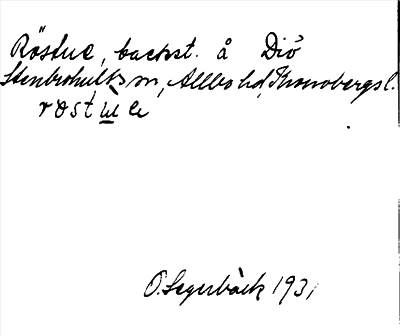 Röstue, backst. å Diö
Stenbrohults sn, Allbo hd, Kronobergs l.
röstue
O. Segerbäck 1931